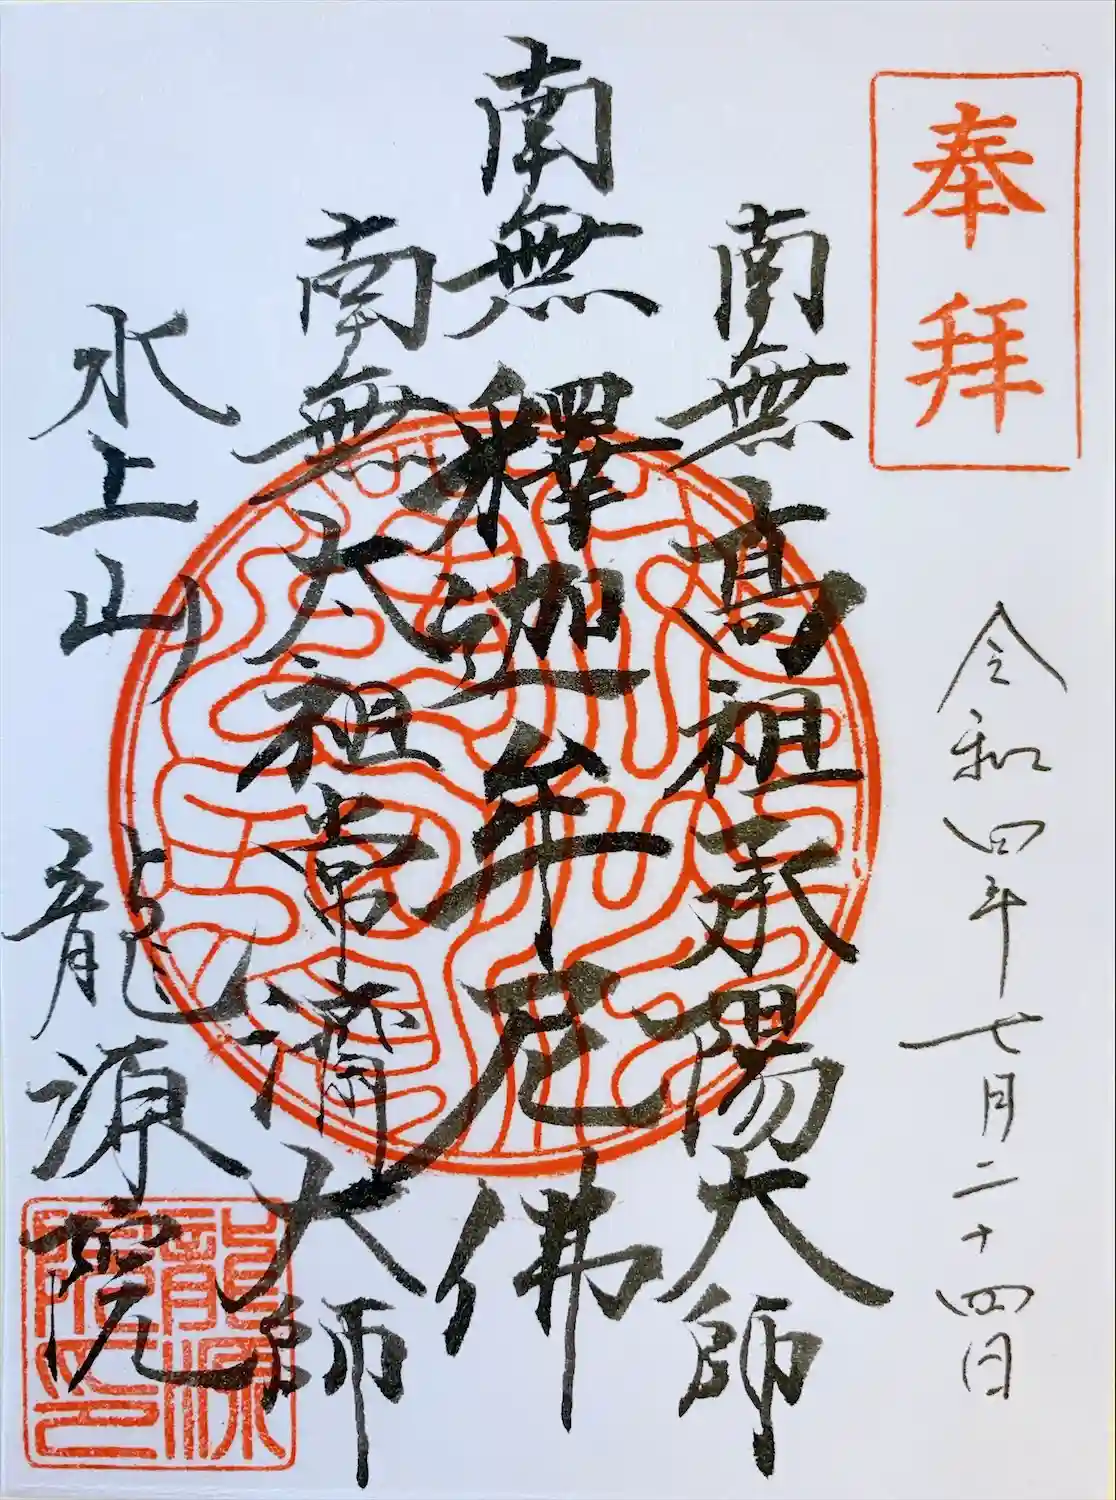 奉拜
令和四年七月二十四日
南無高祖承陽大師
南無釋迦牟尼佛
南無太祖常済大師
水上山 龍源院
龍源院印